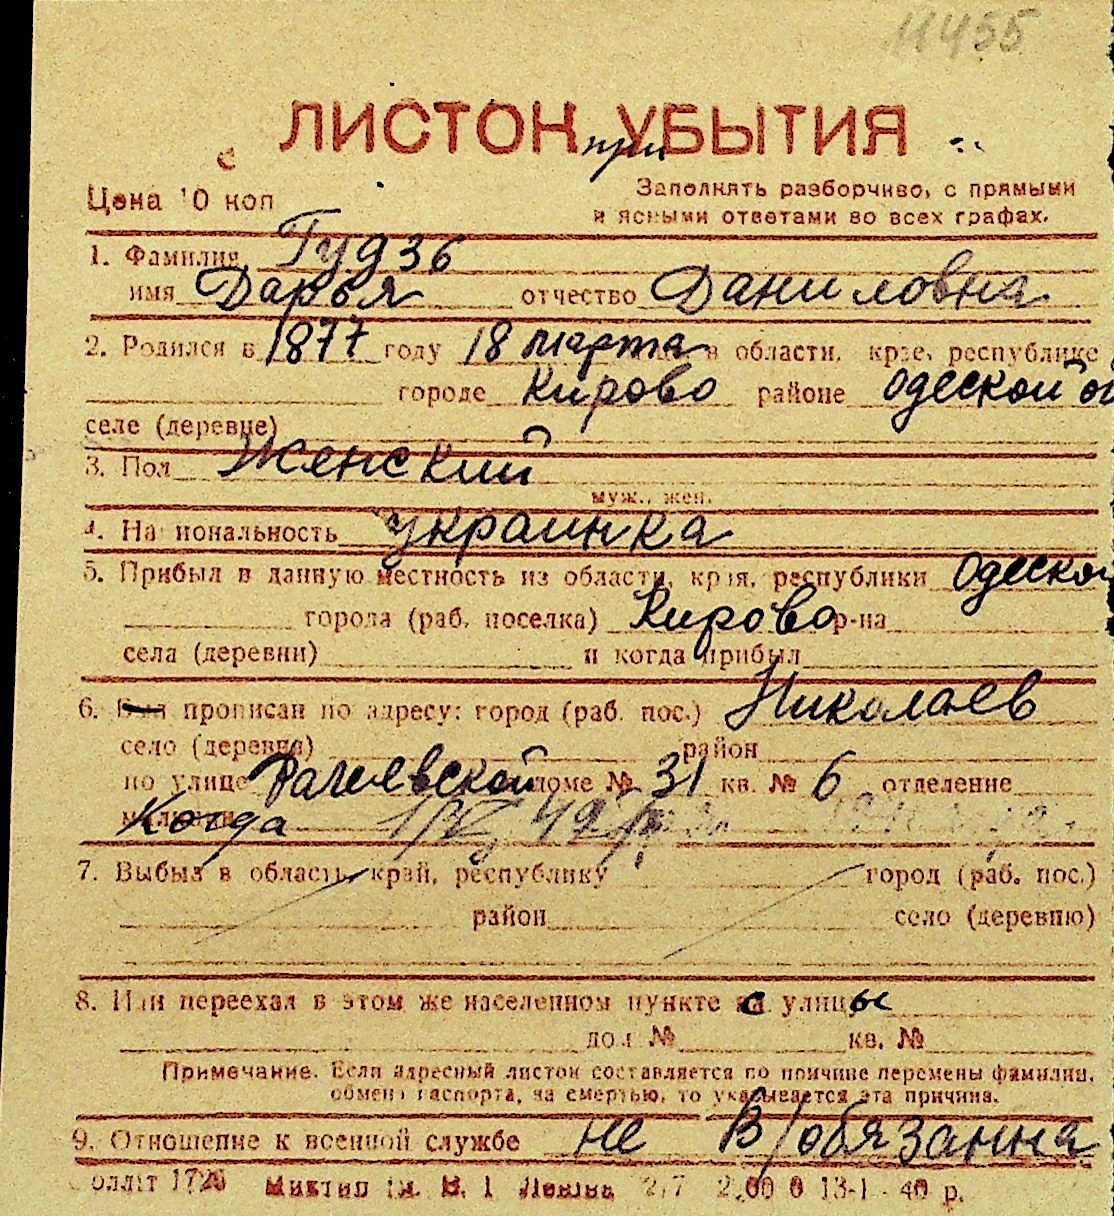 11455
ЛИСТОК при УБЫТИЯ
Цена 10 коп
Заполнять разборчиво, с прямыми
и ясными ответами во всех графах.
1. Фамилия Гудзь
имя Дарья отчество Даниловна
2. Родился в 1877 году 18 марта в области, крае, республике
городе Кирово районе Одеской об
селе (деревне)
3. Пол Женский
муж., жен.
4. Национальность украинка
5. Прибыл в данную местность из области, края, республики Одеской
города (раб. поселка) Кирово р-на
села (деревни) и когда прибыл
6. Был прописан по адресу: город (раб. пос.) Николаев
село (деревня) район
по улице доме № 31 кв. № 6 отделение
милиции Когда
7. Выбыл в область, край, республику город (раб. пос.)
район село (деревню)
8. Или переехал в этом же населенном пункте с улицы
дом № кв. №
Примечание. Если адресный листок составляется по причине перемены фамилии,
обмена паспорта, за смертью, то указывается эта причина.
9. Отношение к военной службе не В/обязанна
им. В. І Леніна 13-1-40 р.